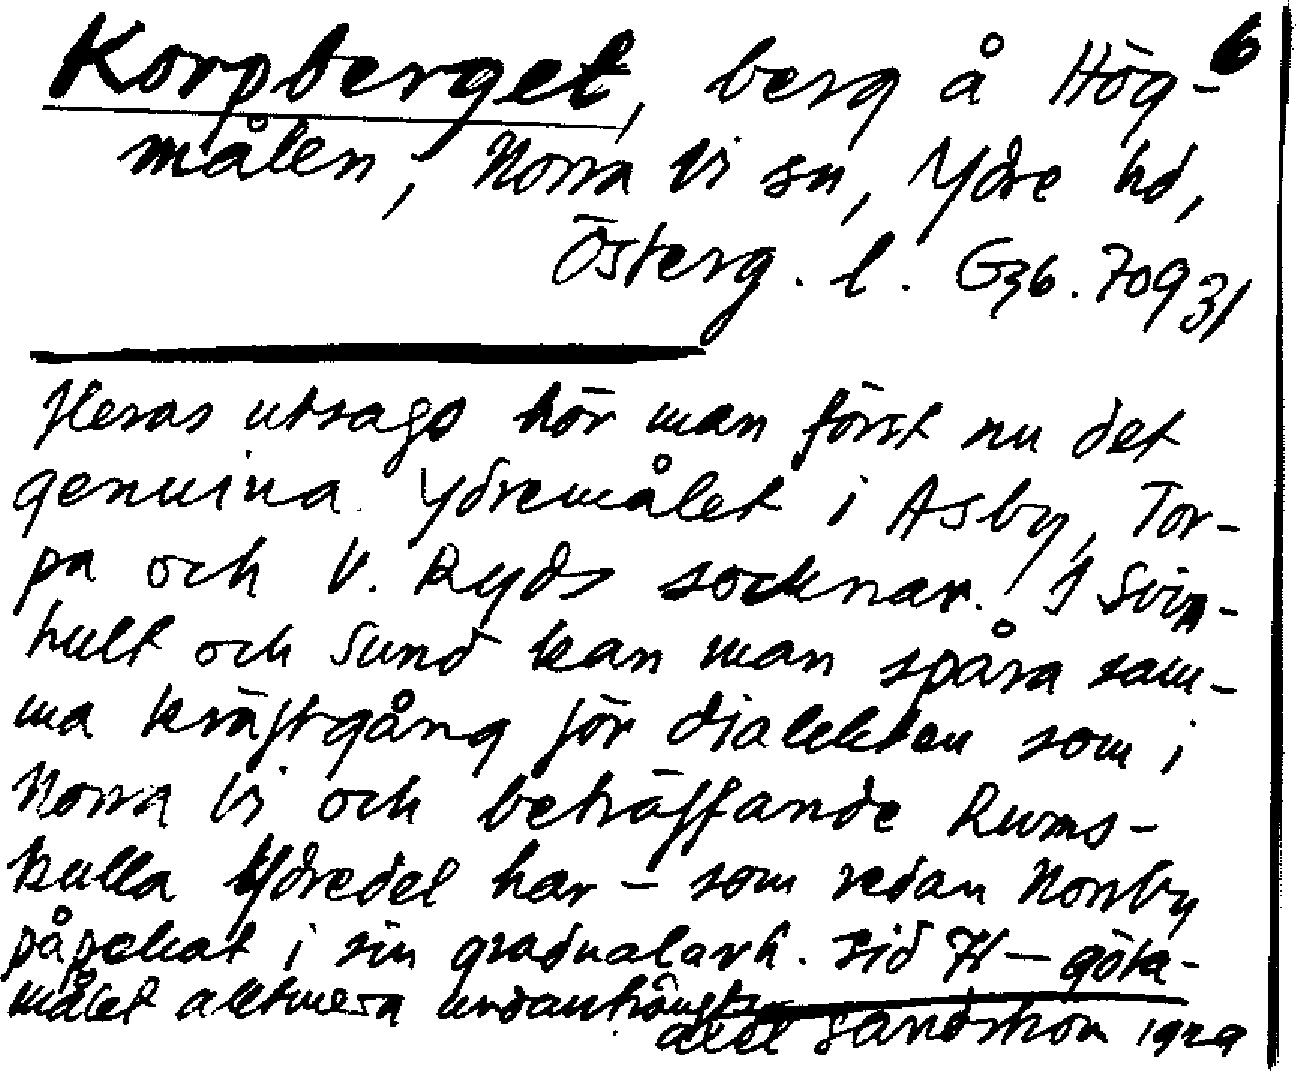 Korpberget, berg å Hög- 6
målen, Norra Vi sn, Ydre hd,
Österg. l. G36.70931
fleras utsago hör man först nu det
genuina Ydremålet i Asby, Tor-
pa och V. Ryds socknar. I Svin-
hult och Sund kan man spåra sam-
ma kräftgång för dialekten som i
Norra Vi och beträffande Rums-
kulla Ydredel har – som redan Norrby
påpekat i sin gradualavh. sid – göta-
målet alltmera undanträngts.
Axel Sandström 1929